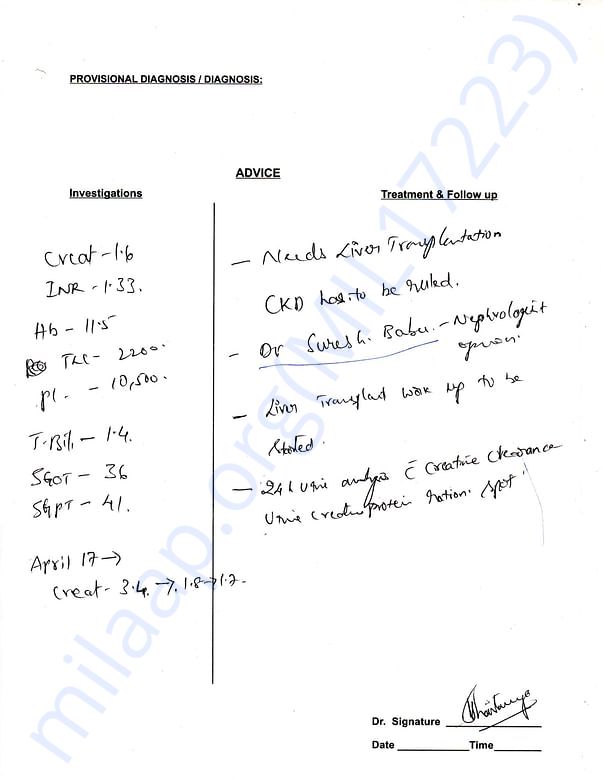 PROVISIONAL DIAGNOSIS / DIAGNOSIS:
ADVICE
Investigations
Creat - 1.6
INR - 1.33.
Hb - 11.5
TLC - 2200.
Pl. - 10,500.
T. Bil - 1.4.
SGOT - 36
SGPT - 41.
April 17 →
Creat - 3.4. → 1.8 → 1.7.
Treatment & Follow up
— Needs Liver Transplantation
CKD has to be ruled.
- Dr Suresh. Babu. - Nephrologist
opinion.
— Liver Transplant work up to be
started.
— 24 h urine analysis c̄ Creatine clearance
Urine protein spot.
Dr. Signature
Date Time
milaap.org(MIL17223)